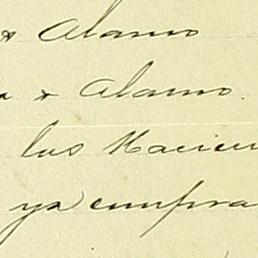 x Alamo
x Alamo.
las Hacien
ya compra